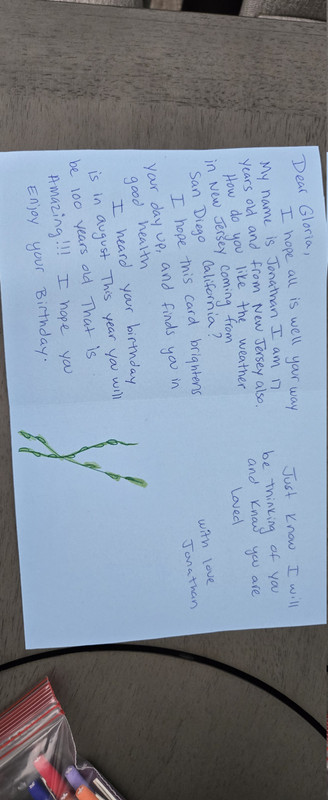 Dear Gloria,
I hope all is well your way
My name is Jonathan I am 17
years old and from New Jersey also.
How do you like the weather
in New Jersey coming from
San Diego California?
I hope this card brightens
your day up, and finds you in
good health
I heard your birthday
is in august This year you will
be 100 years old That is
Amazing!!! I hope you
Enjoy your Birthday.
Just know I will
be thinking of you
and know you are
Loved
with love
Jonathan